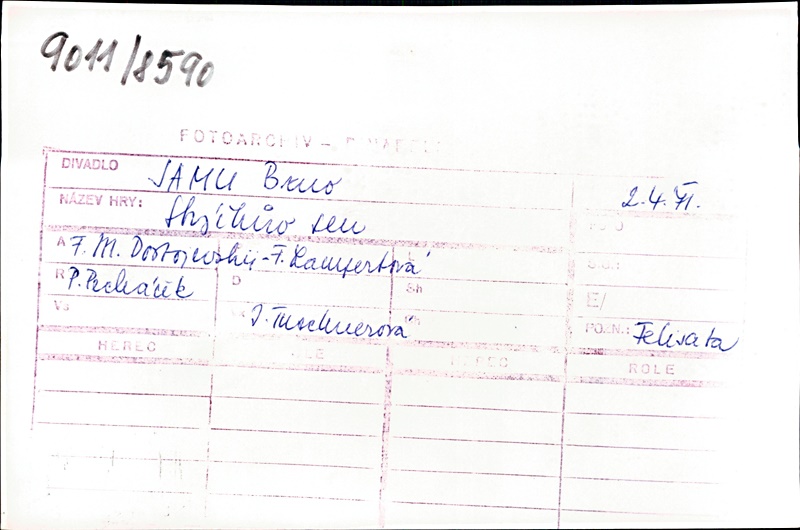 9011/8590
FOTOARCHIV –
DIVADLO JAMU Brno
2.4.71.
NÁZEV HRY: Strýčkův sen
A F. M. Dostojevskij - F. Lampertová
R P. Pecháček D Sh E/
Vs J. Tuschnerová POZN.: Felisata
HEREC HEREC ROLE